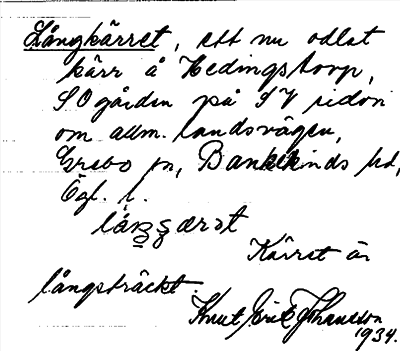 Långkärret, ett nu odlat
kärr å Hedingstorp,
SOgården på SV sidan
om allm. landsvägen,
Grebo sn, Bankekinds hd,
Ögl. l.
Kärret är
långsträckt.
Knut Erik Johansson
1934.